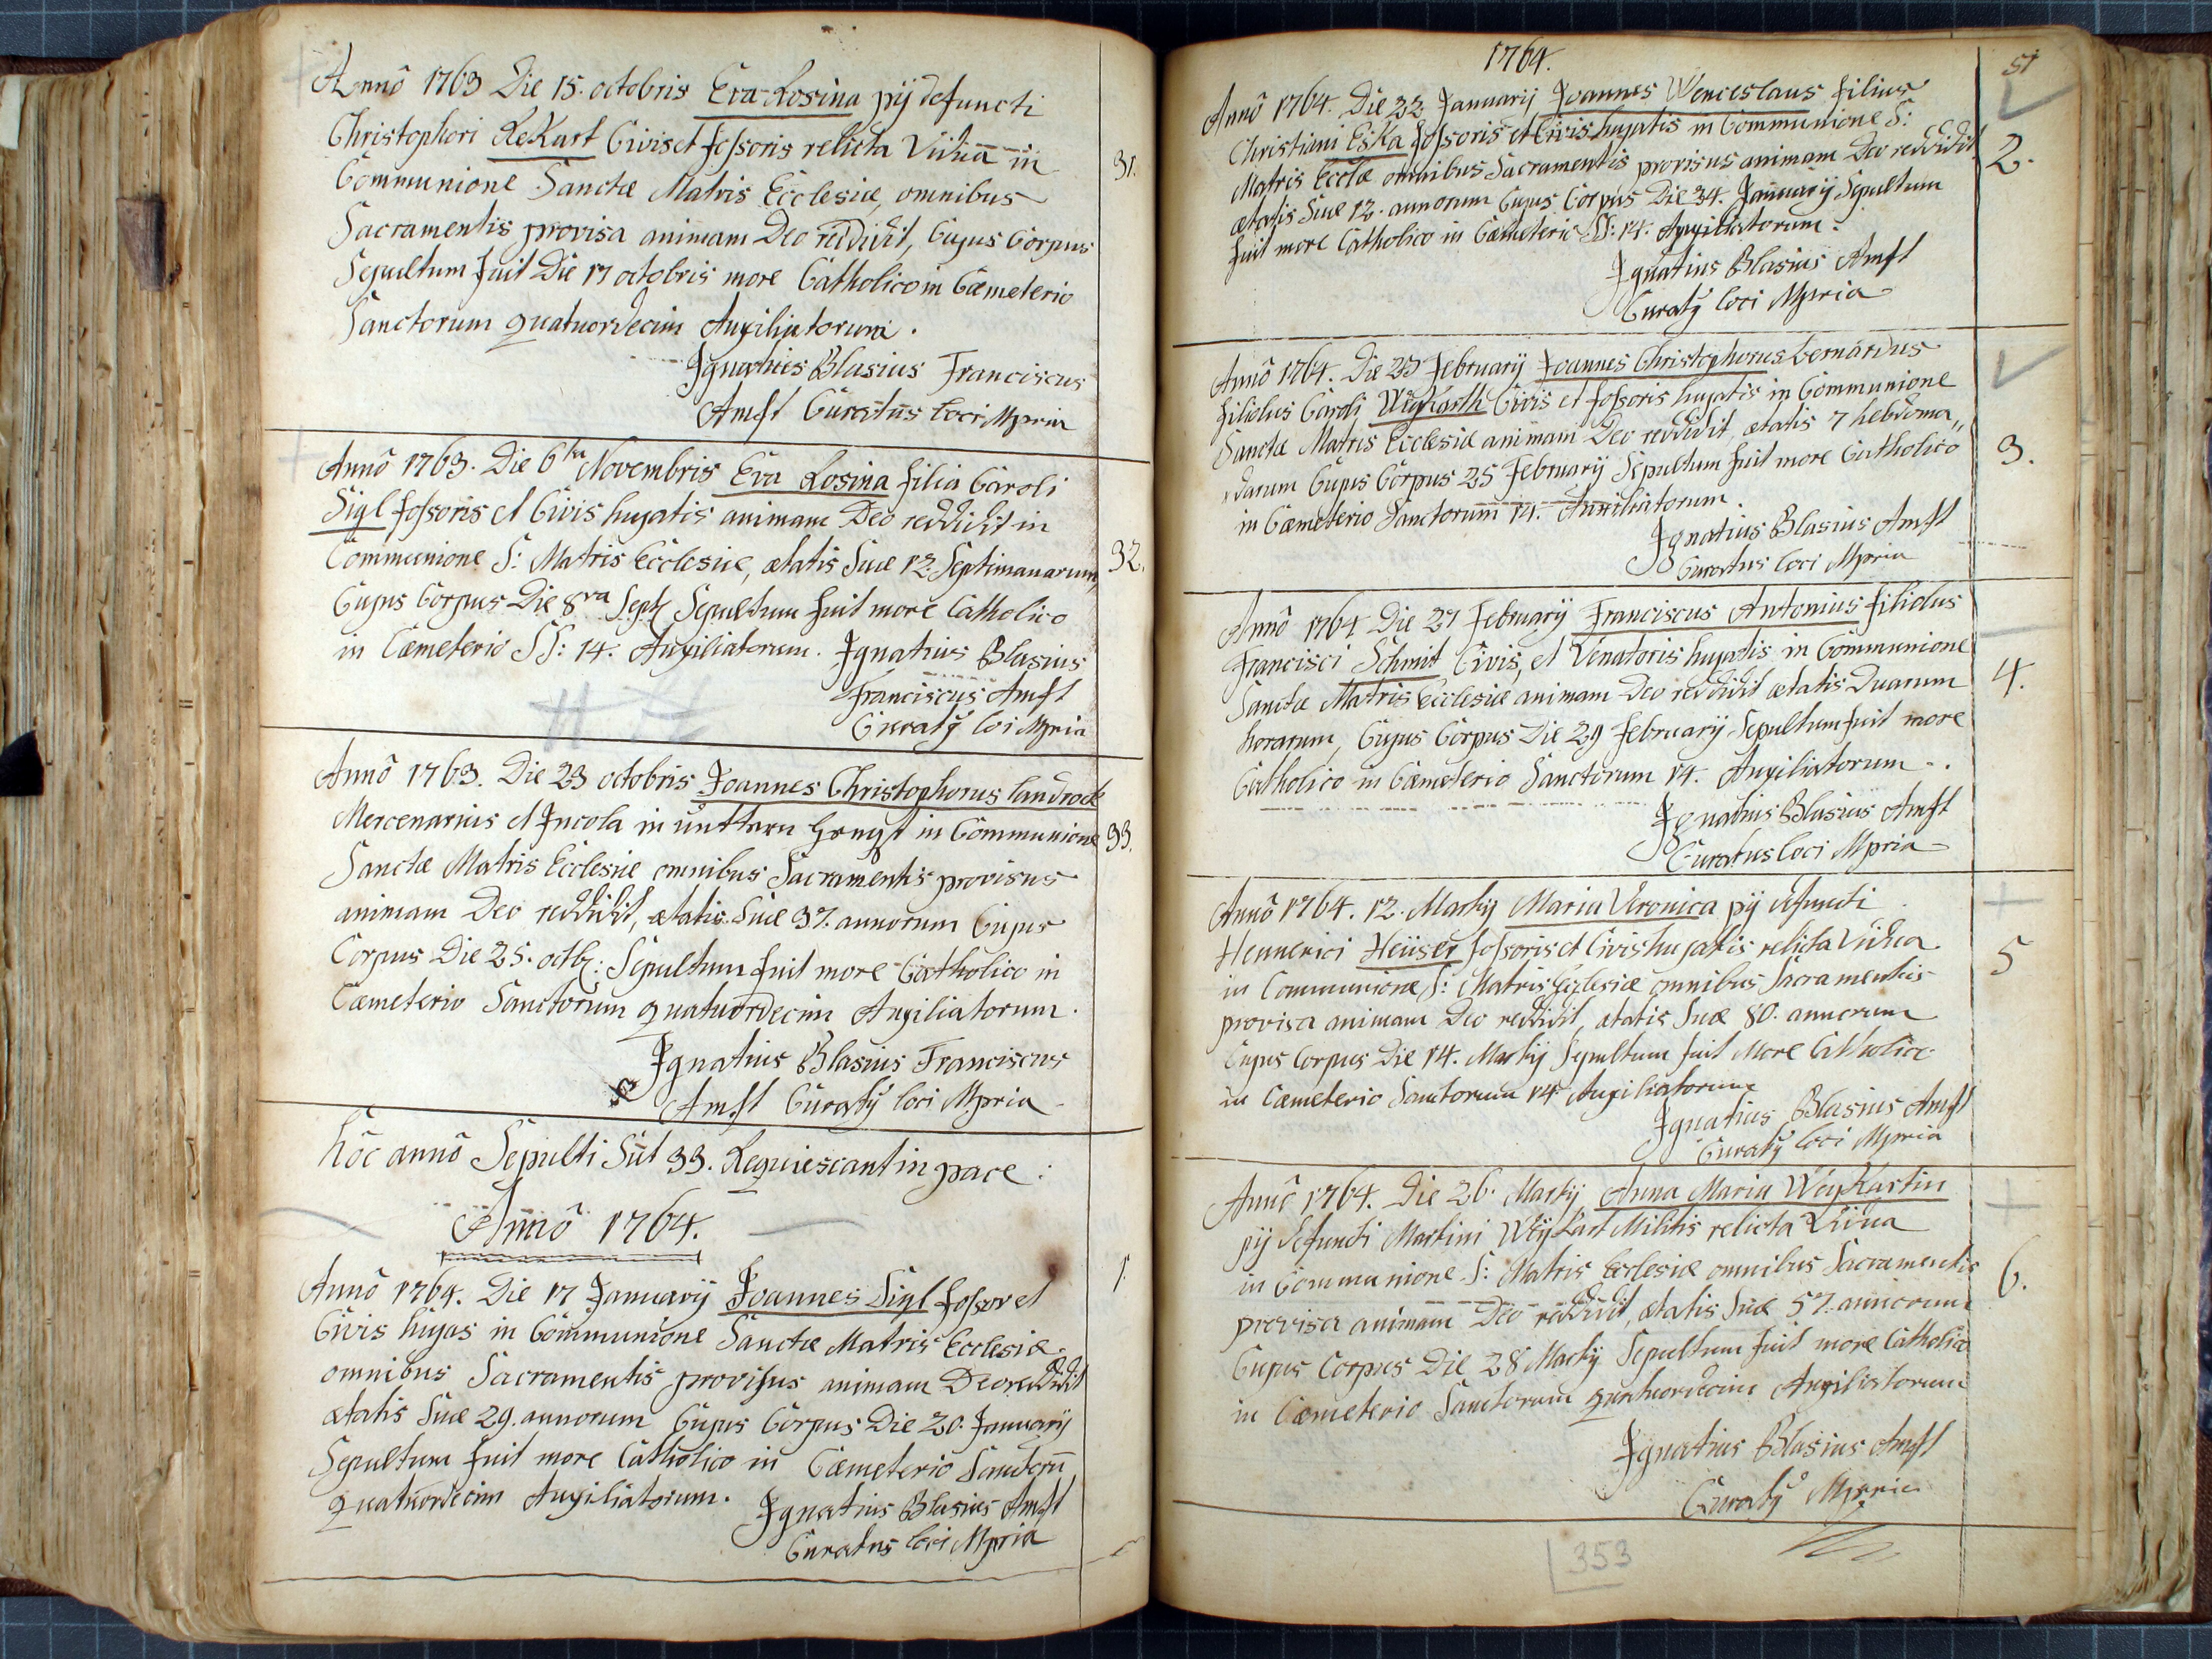 Annô 1763 Die 15. octobris Eva Rosina pÿ defuncti
Christophori ReKart Civis et fossoris relicta Vidua in
Communione Sanctæ Matris Ecclesiæ, omnibus
Sacramentis provisa animam Deo reddidit, Cujus Corpus
Sepultum fuit Die 17 octobris more Catholico in Cæmeterio
Sanctorum quatuordecim Auxiliatorum.
31.
Ignatius Blasius Franciscus
Amft Curatus loci Mpria
Annô 1763. Die 6ta Novembris Eva Rosina filia Caroli
Sigl fossoris et Civis hujatis animam Deo reddidit in
Communione S: Matris Ecclesiæ, ætatis Suæ 12. Septimanarum,
32.
Cujus Corpus Die 8va Sepultum fuit more Catholico
in Cæmeterio SS: 14. Auxiliatorum. Ignatius Blasius
Franciscus Amft
Curatq loi Mpria
Annô 1763. Die 23 octobris Joannes Christophorus landrock
Mercenarius et Incola in Communione
33.
Sanctæ Matris Ecclesiæ omnibus Sacramentis provisus
animam Deo reddidit, ætatis Suæ 37. annorum Cujus
Corpus Die 25. octb: Sepultum fuit more Catholico in
Cæmeterio Sanctorum quatuordecim Auxiliatorum.
Ignatius Blasius Franciscus
Amft Curatq loci Mpria
hôc annô Sepulti Sut 33. Requiescant in pace:
Annô 1764.
Annô 1764. Die 17 Januarÿ Joannes Sigl fossor et
1.
Civis hujas in Communione Sanctæ Matris Ecclesiæ
omnibus Sacramentis provisus animam Deo reddidit
ætatis Suæ 29. annorum Cujus Corpus Die 20. Januarÿ
Sepultum fuit more Catholico in Cæmeterio Sanctorū
quatuordecim Auxiliatorum. Ignatius Blasius Amft
Curatus loci Mpria
1764.
51
Annô 1764. Die 22. Januarÿ Joannes Wenceslaus filius
Christiani EsKa fossoris et Civis hujatis in Communione S:
2.
Matris Ecclæ omnibus Sacramentis provisus animam Deo reddidit
ætatis Suæ 12. annorum Cujus Corpus Die 24. Januarÿ Sepultum
fuit more Catholico in Cæmeterio SS: 14. Auxiliatorum.
Ignatius Blasius Amft
Curatq loci Mpria
Annô 1764. Die 23 februarÿ Joannes Christophorus bernardus
filiolus Caroli Civis et fossoris hujatis in Communione
Sanctæ Matris Ecclesiæ animam Deo reddidit, ætatis 7 hebdoma„
3.
„darum Cujus Corpus 25 februarÿ Sepultum fuit more Catholico
in Cæmeterio Sanctorum 14. Auxiliatorum.
Ignatius Blasius Amft
Curatus loci Mpria
Annô 1764 Die 27 februarÿ Franciscus Antonius filiolus
Francisci Schmit Civis, et Venatoris hujatis in Communione
4.
Sanctæ Matris Ecclesiæ animam Deo reddidit ætatis Duarum
horarum, Cujus Corpus Die 29 februarÿ Sepultum fuit more
Catholico in Cæmeterio Sanctorum 14. Auxiliatorum.
Ignatius Blasius Amft
Curatus loci Mpria
Annô 1764. 12. Martÿ Maria Veronica pÿ defuncti
Hennerici Heüser fossoris et Civis hujatis relicta Vidua
5
in Communione S: Matris Ecclesiæ omnibus Sacramentis
provisa animam Deo reddidit, ætatis Suæ 80. annorum
Cujus Corpus Die 14. Martÿ Sepultum fuit More Catholico
in Cæmeterio Sanctorum 14 Auxiliatorum
Ignatius Blasius Amft
Curatq loci Mpria
Annô 1764. Die 26. Martÿ Anna Maria WeyKartin
pÿ defuncti Martini WeyKart Militis relicta Vidua
in Communione S: Matris Ecclesiæ omnibus Sacramentis
6.
provisa animam Deo reddidit, ætatis Suæ 57. annorum
Cujus Corpus Die 28 Martÿ Sepultum fuit more Catholico
in Cæmeterio Sanctorum quatuordecim Auxiliatorum
Ignatius Blasius Amft
Curatq Mpria
353